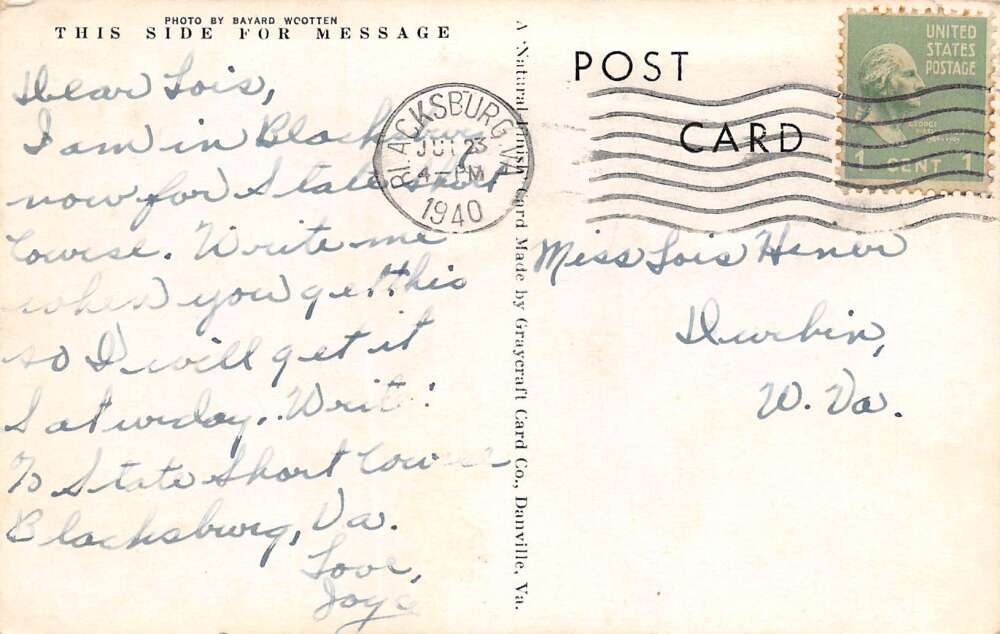 PHOTO BY BAYARD WOOTTEN
THIS SIDE FOR MESSAGE
Dear Lois,
I am in Blacksburg
now for State short
Course. Write me
when you get this
so I will get it
Saturday. Write:
% State Short Course
Blacksburg, Va.
Love,
A Natural Finish Card Made by Graycraft Card Co., Danville, Va.
POST
CARD
BLACKSBURG, VA.
23
4-PM
1940
UNITED
STATES
POSTAGE
1 CENT 1
Miss Lois Hiner
Durbin,
W. Va.